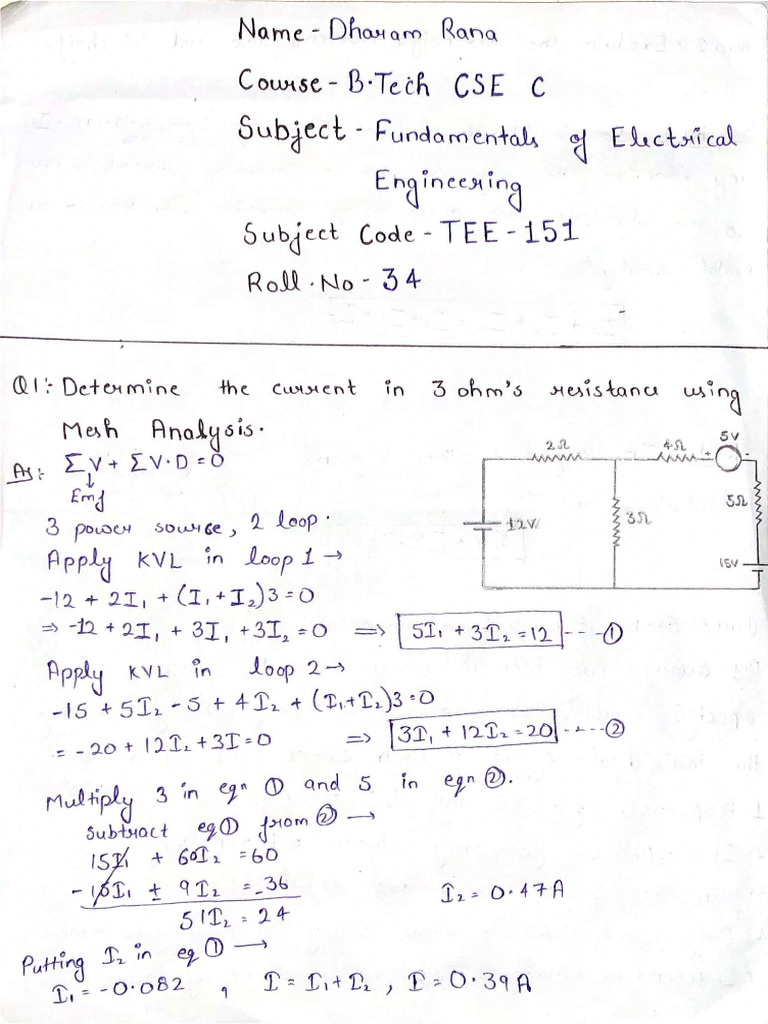 Name - Dharam Rana
Course - B.Tech CSE C
Subject - Fundamentals of Electrical
Engineering
Subject Code - TEE - 151
Roll.No - 34
Q1:- Determine the current in 3 ohm's resistance using
Mesh Analysis.
As: ΣV + ΣV.D = 0
↓
Emf
3 power source, 2 loop.
Apply KVL in loop 1 →
-12 + 2I₁ + (I₁+I₂)3 = 0
⇒ -12 + 2I₁ + 3I₁ + 3I₂ = 0 ⇒ 5I₁ + 3I₂ = 12 ---- ①
2Ω
4Ω
+
5V
5Ω
12V
3Ω
15V
Apply KVL in loop 2 →
-15 + 5I₂ - 5 + 4I₂ + (I₁+I₂)3 = 0
= -20 + 12I₂ + 3I = 0 ⇒ 3I₁ + 12I₂ = 20 ---- ②
Multiply 3 in eqn ① and 5 in eqn ②.
Subtract eq ① from ② →
15I₁ + 60I₂ = 60
- 15I₁ ± 9I₂ = -36
51I₂ = 24 I₂ = 0.47A
Putting I₂ in eq ① →
I₁ = -0.082 , I = I₁ + I₂ , I = 0.39A